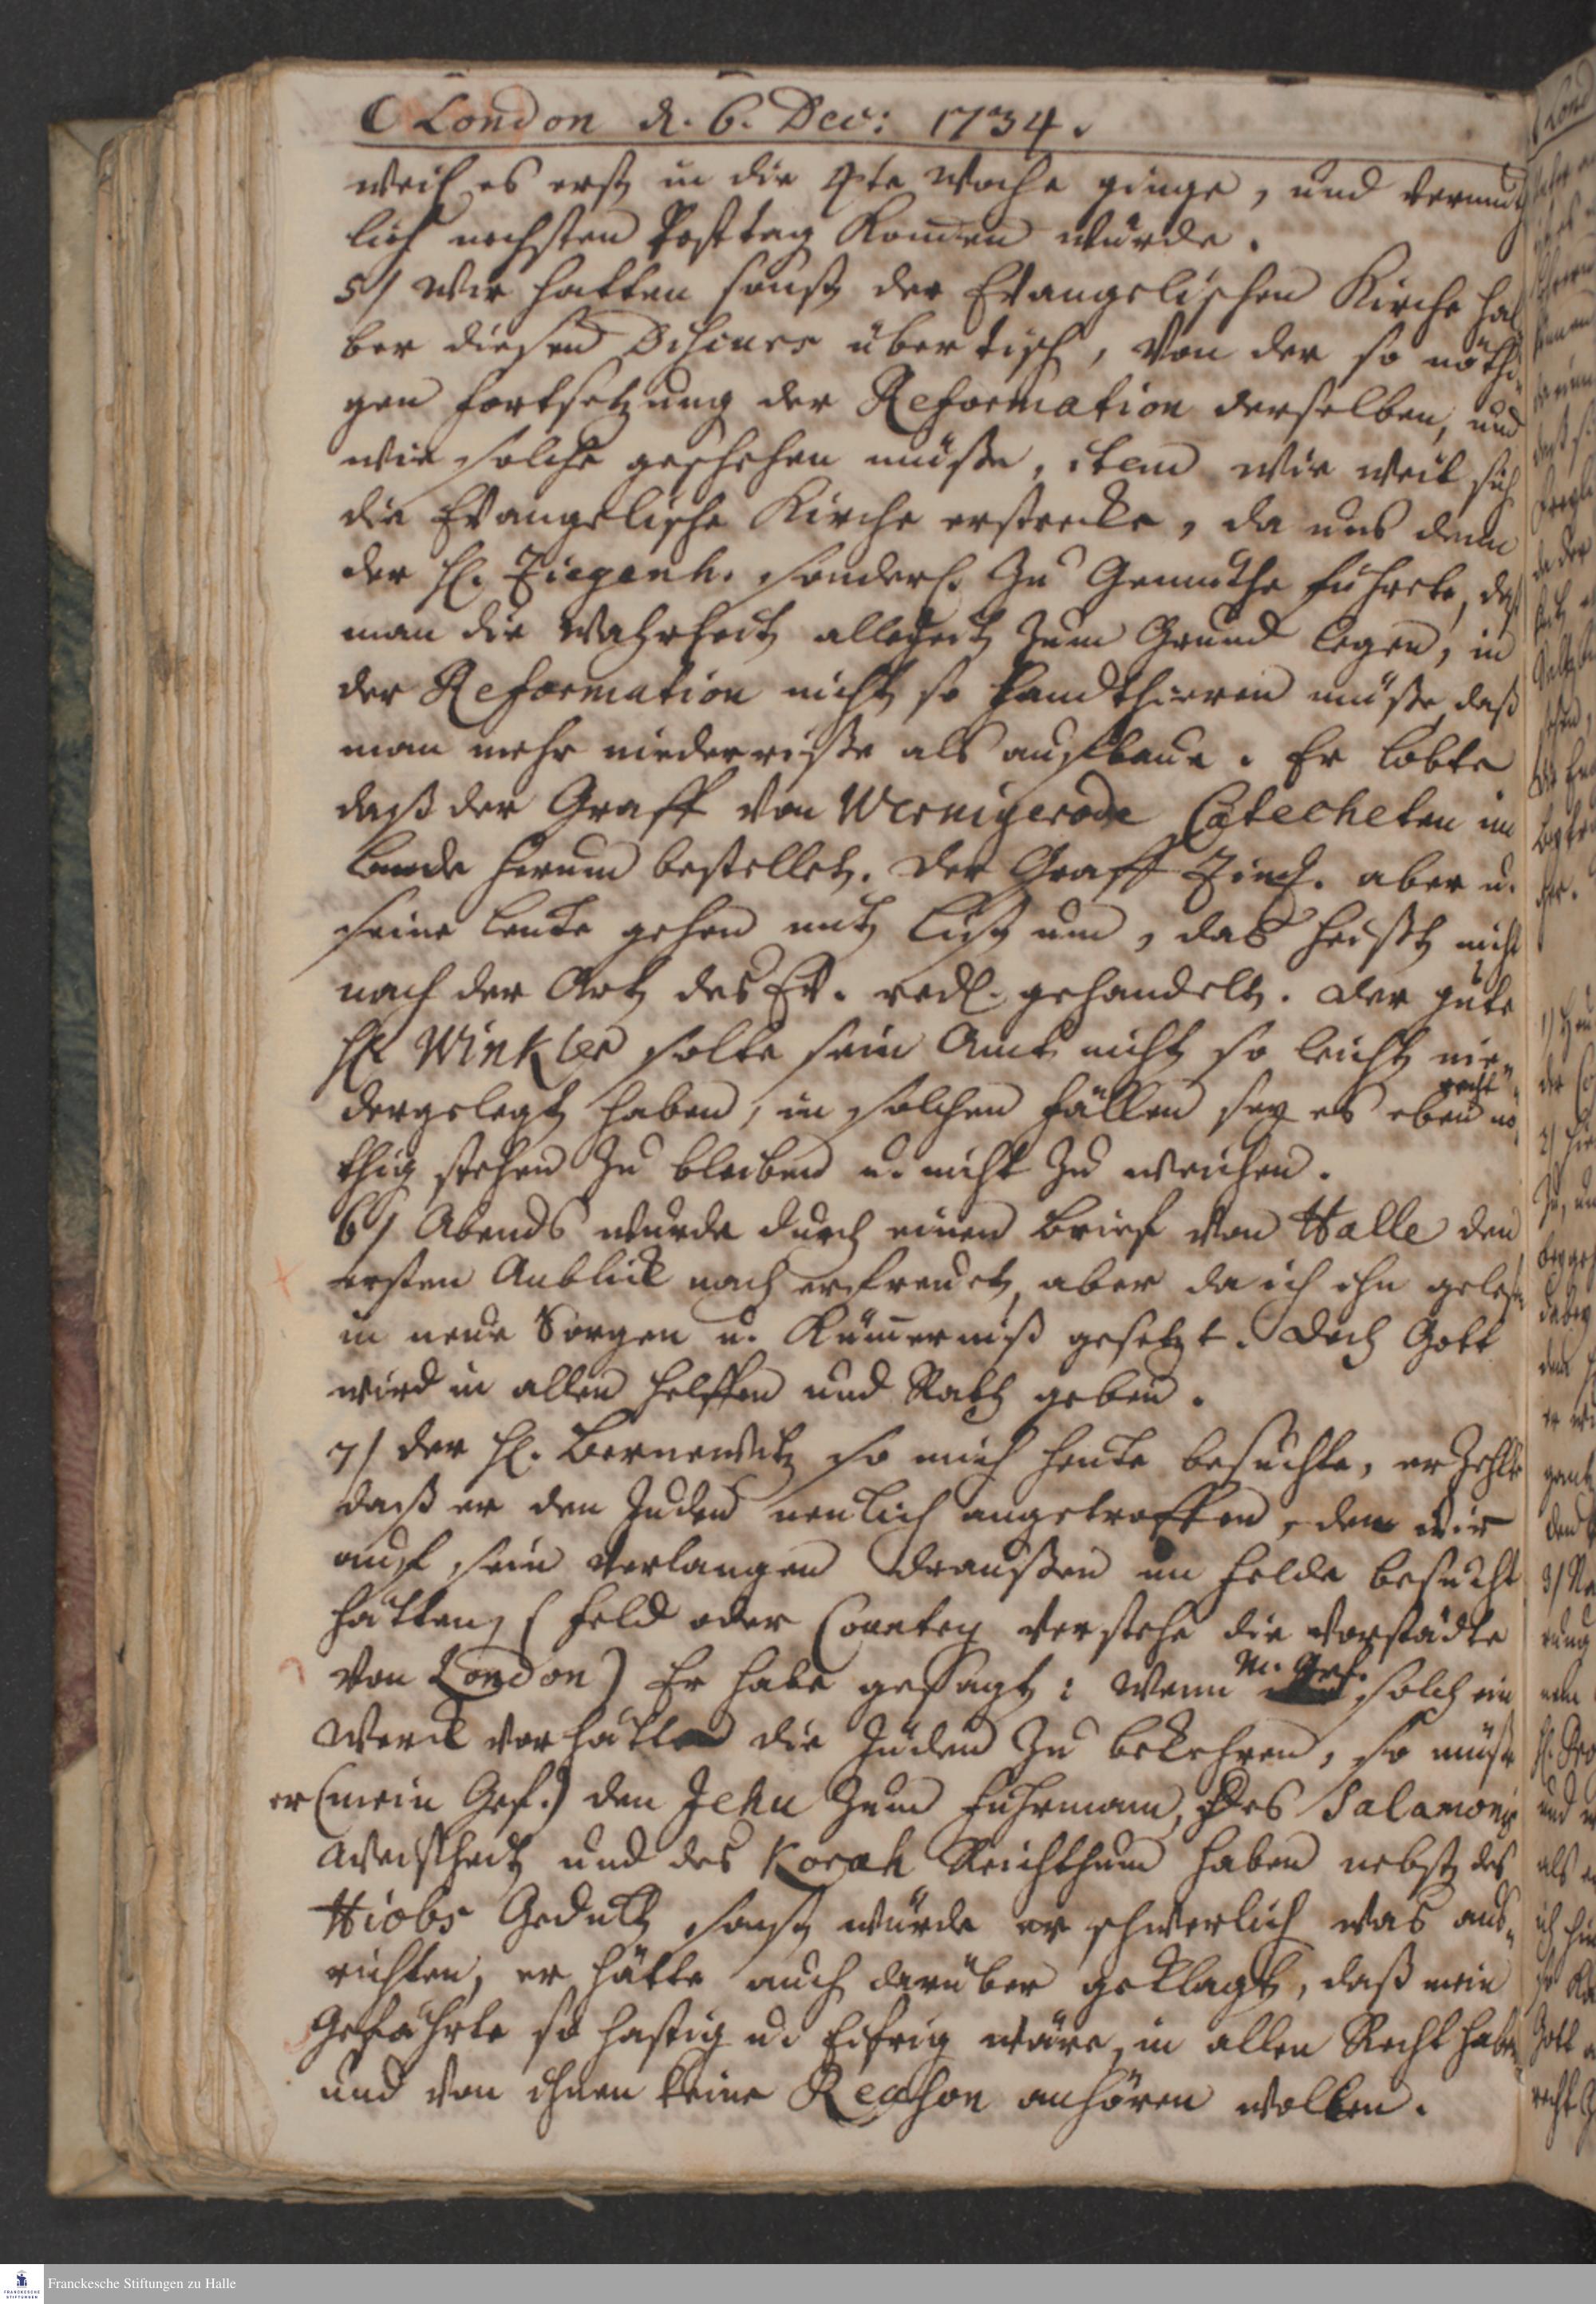 ☾ London d. 6. Dec: 1734.
weil es erst in die 4te Woche ginge, und vermuth
lich nechsten Posttag komen würde.
5/ Wir hatten sonst der Evangelischen Kirche hal
ber diesen Discurs über tisch, von der so nöthi-
gen fortsetzung der Reformation derselben, und
wie solche geschehen müsse, item wie weit sich
die Evangelische Kirche erstrecke, da uns denn
der H. Ziegenh. sonderl. zu Gemüthe führete, daß
man die Wahrheit allezeit zum Grund legen, in
der Reformation nicht so handthieren müsse, daß
man mehr niederrisse als aufbaue. Er lobte
daß der Graff von Wernigerode Catecheten im
Lande herum bestellet. Der Graff Zinz. aber u.
seine Leute gehen mit List um, das heißt nicht
nach der Art des Ev. redl. gehandelt. Der gute
H. Winkler solte sein Amt nicht so leicht nie-
dergelegt haben, in solchen fällen sey es eben recht nö-
thig stehen zu bleiben u. nicht zu weichen.
6/ Abends wurde durch einen brief von Halle den
ersten Anblick nach erfreuet, aber da ich ihn gelesen
in neue Sorgen u. Kümerniß gesetzt. Doch Gott
wird in allen helffen und Rath geben.
7/ Der H. Bernewitz so mich heute besuchte, erzehlte
daß er den Juden neulich angetroffen, dem wir
auf sein Verlangen draussen im felde besucht
hätten, (feld oder Countey verstehe die Vorstädte
von London) Er habe gesagt: Wenn m. Gef. solch ein
Werck vorhätte die Juden zu bekehren, so müste
er (mein Gef.) den Jehu zum fuhrmann, des Salamonis
Weisheit und des Korah Reichthum haben nebst des
Hiobs Gedult sonst würde er schwerlich was aus-
richten, er hätte auch darüber geklagt, daß mein
Gefährte so hastig u. Eifrig wäre, in allen Recht haben
und von ihnen keine Reason anhören wollen.
Franckesche Stiftungen zu Halle